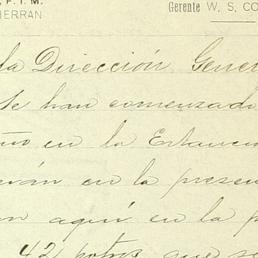 P. T. M.
HERRAN
Gerente W. S. CO
la Dirección Gener
Se han comenzado
año en la Estancia
en la presen
aquí en la p
42 potros que se